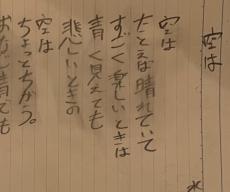 空は
空は
たとえば晴れていて
すごく楽しいときは
青く見えても
悲しいときの
空は
ちょっとちがう。
おなじ青でも